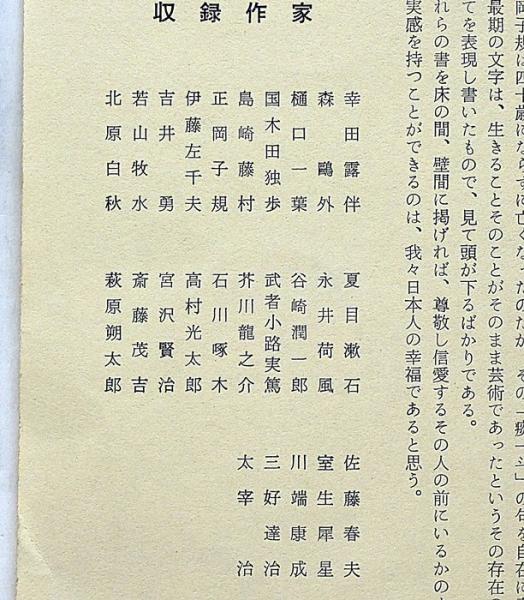 岡子規は四十歳にならずに亡くなったのだが、その「一疲一斗」の句を自在に
最期の文字は、生きることそのことがそのまま芸術であったというその存在の
てを表現し書いたもので、見て頭が下るばかりである。
れらの書を床の間、壁間に掲げれば、尊敬し信愛するその人の前にいるかの
実感を持つことができるのは、我々日本人の幸福であると思う。
収録作家
幸田露伴
森鷗外
樋口一葉
国木田独歩
島崎藤村
正岡子規
伊藤左千夫
吉井勇
若山牧水
北原白秋
夏目漱石
永井荷風
谷崎潤一郎
武者小路実篤
芥川龍之介
石川啄木
高村光太郎
宮沢賢治
斎藤茂吉
萩原朔太郎
佐藤春夫
室生犀星
川端康成
三好達治
太宰治